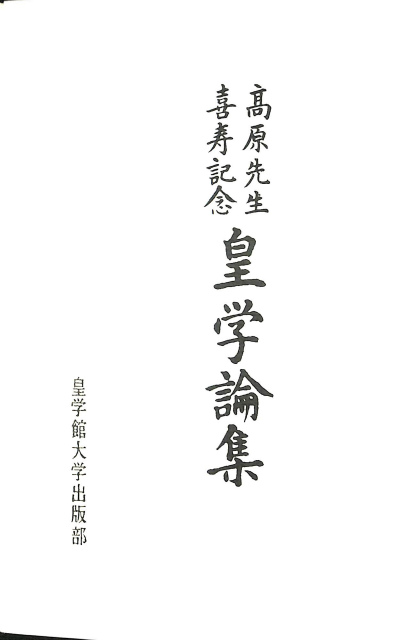 髙原先生
喜寿記念
皇学論集
皇学館大学出版部